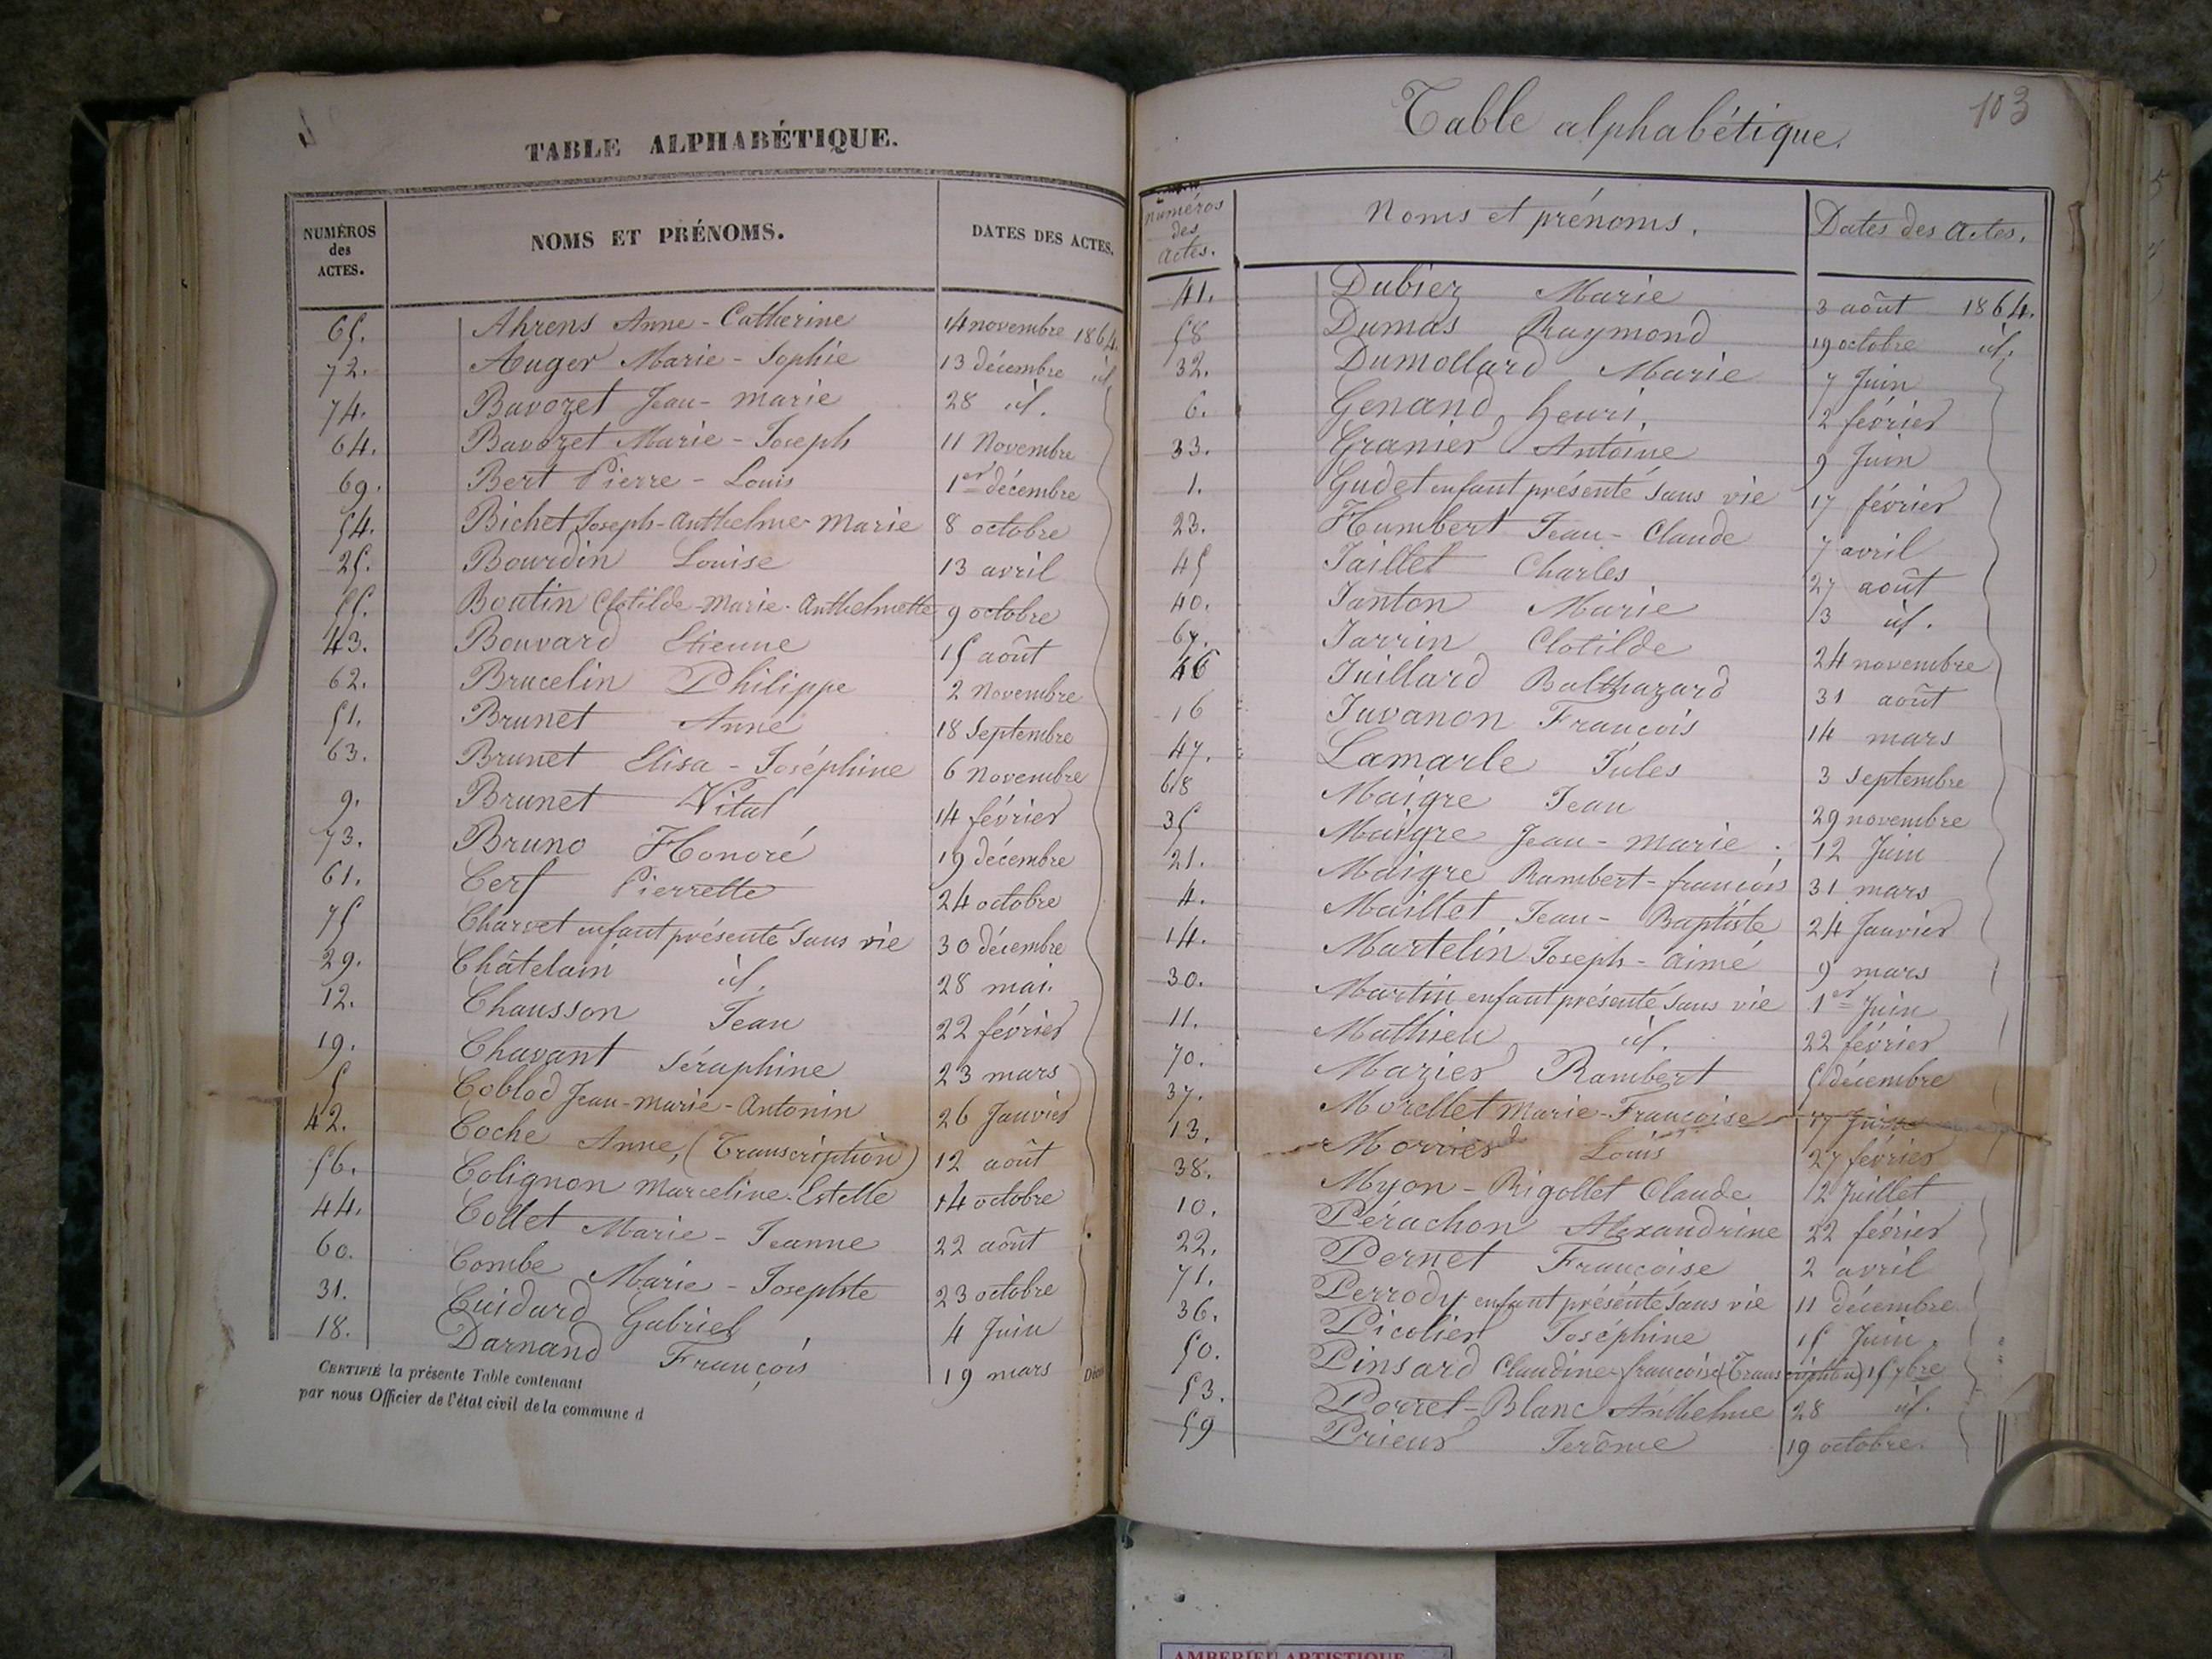 TABLE ALPHABÉTIQUE.
NUMÉROS des ACTES. NOMS ET PRÉNOMS. DATES DES ACTES.
65. Ahrens Anne-Catherine 14 novembre 1864.
72. Auger Marie-Sophie 13 décembre id.
74. Bavozet Jean-marie 28 id.
64. Bavozet Marie-Joseph 11 Novembre
69. Bert Pierre-Louis 1er décembre
54. Bichet Joseph-Anthelme-Marie 8 octobre
25. Bourdin Louise 13 avril
55. Boutin Clotilde-Marie-Anthelmette 9 octobre
43. Bouvard Etienne 15 août
62. Brucelin Philippe 2 Novembre
51. Brunet Anne 18 Septembre
63. Brunet Elisa-Joséphine 6 Novembre
9. Brunet Vital 14 février
73. Bruno Honoré 19 décembre
61. Cerf Pierrette 24 octobre
75 Charvet enfant présenté sans vie 30 décembre
29. Châtelain id. 28 mai.
12. Chausson Jean 22 février
19. Chavant Séraphine 23 mars
5 Coblod Jean-marie-Antonin 26 Janvier
42. Coche Anne, (Transcription) 12 août
56. Colignon Marceline-Estelle 14 octobre
44. Collet Marie-Jeanne 22 août
60. Combe Marie-Josephte 23 octobre
31. Cuidard Gabriel 4 Juin
18. Darnand François 19 mars
CERTIFIÉ la présente Table contenant
par nous Officier de l'état civil de la commune d
103
Table alphabétique.
Numéros des actes. Noms et prénoms. Dates des actes.
41. Dubiez Marie 3 août 1864.
58 Dumas Raymond 19 octobre id.
32. Dumollard Marie 7 Juin
6. Genand Henri, 2 février
33. Granier Antoine 9 Juin
1. Gudet enfant présenté sans vie 17 février
23. Humbert Jean-Claude 7 avril
45 Jaillet Charles 27 août
40. Janton Marie 3 id.
67. Jarrin Clotilde 24 novembre
46 Juillard Balthazard 31 août
16 Juvanon François 14 mars
47. Lamarle Jules 3 Septembre
68 Maigre Jean 29 novembre
35 Maigre Jean-marie 12 Juin
21. Maigre Rambert-françois 31 mars
4. Maillet Jean-Baptiste 24 Janvier
14. Martelin Joseph-aimé 9 mars
30. Martin enfant présenté sans vie 1er Juin
11. Mathieu id. 22 février
70. Mazier Rambert 5 décembre
37. Morellet Marie-Françoise 17 Juin
13. Morrier Louis 27 février
38. Myon-Rigollet Claude 2 Juillet
10. Pérachon Alexandrine 22 février
22. Pernet Françoise 2 avril
71. Perrody enfant présenté sans vie 11 décembre
36. Picolier Joséphine 15 Juin
50. Pinsard Claudine françoise (Transcription) 15 7bre
53. Porret-Blanc Anthelme 28 id.
59 Prieur Jerôme 19 octobre.
AMBERIEU ARTISTIQUE